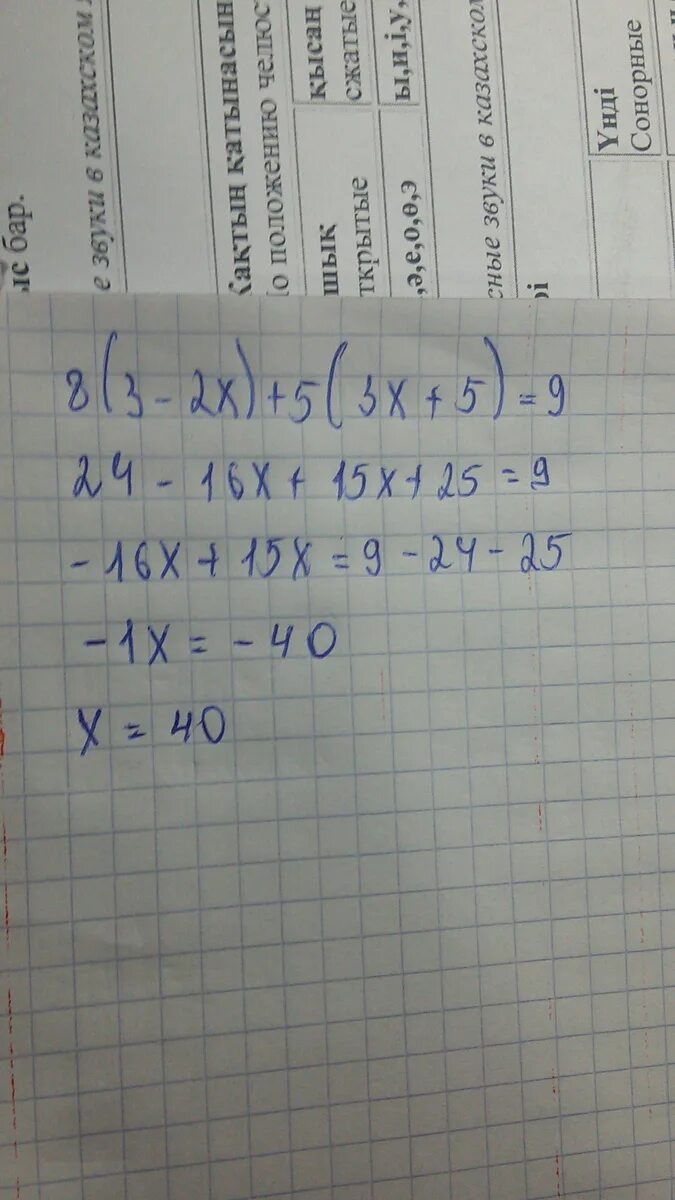 ыс бар.
е звуки в казахском
қатынасын
о положению челюс
шык
қысаң
ткрытые
сжатые
,ә,е,о,ө,э
ы,и,і,у,
сные звуки в казахском
рі
Үнді
Сонорные
8(3-2x)+5(3x+5)=9
24-16x+15x+25=9
-16x+15x=9-24-25
-1x=-40
x=40